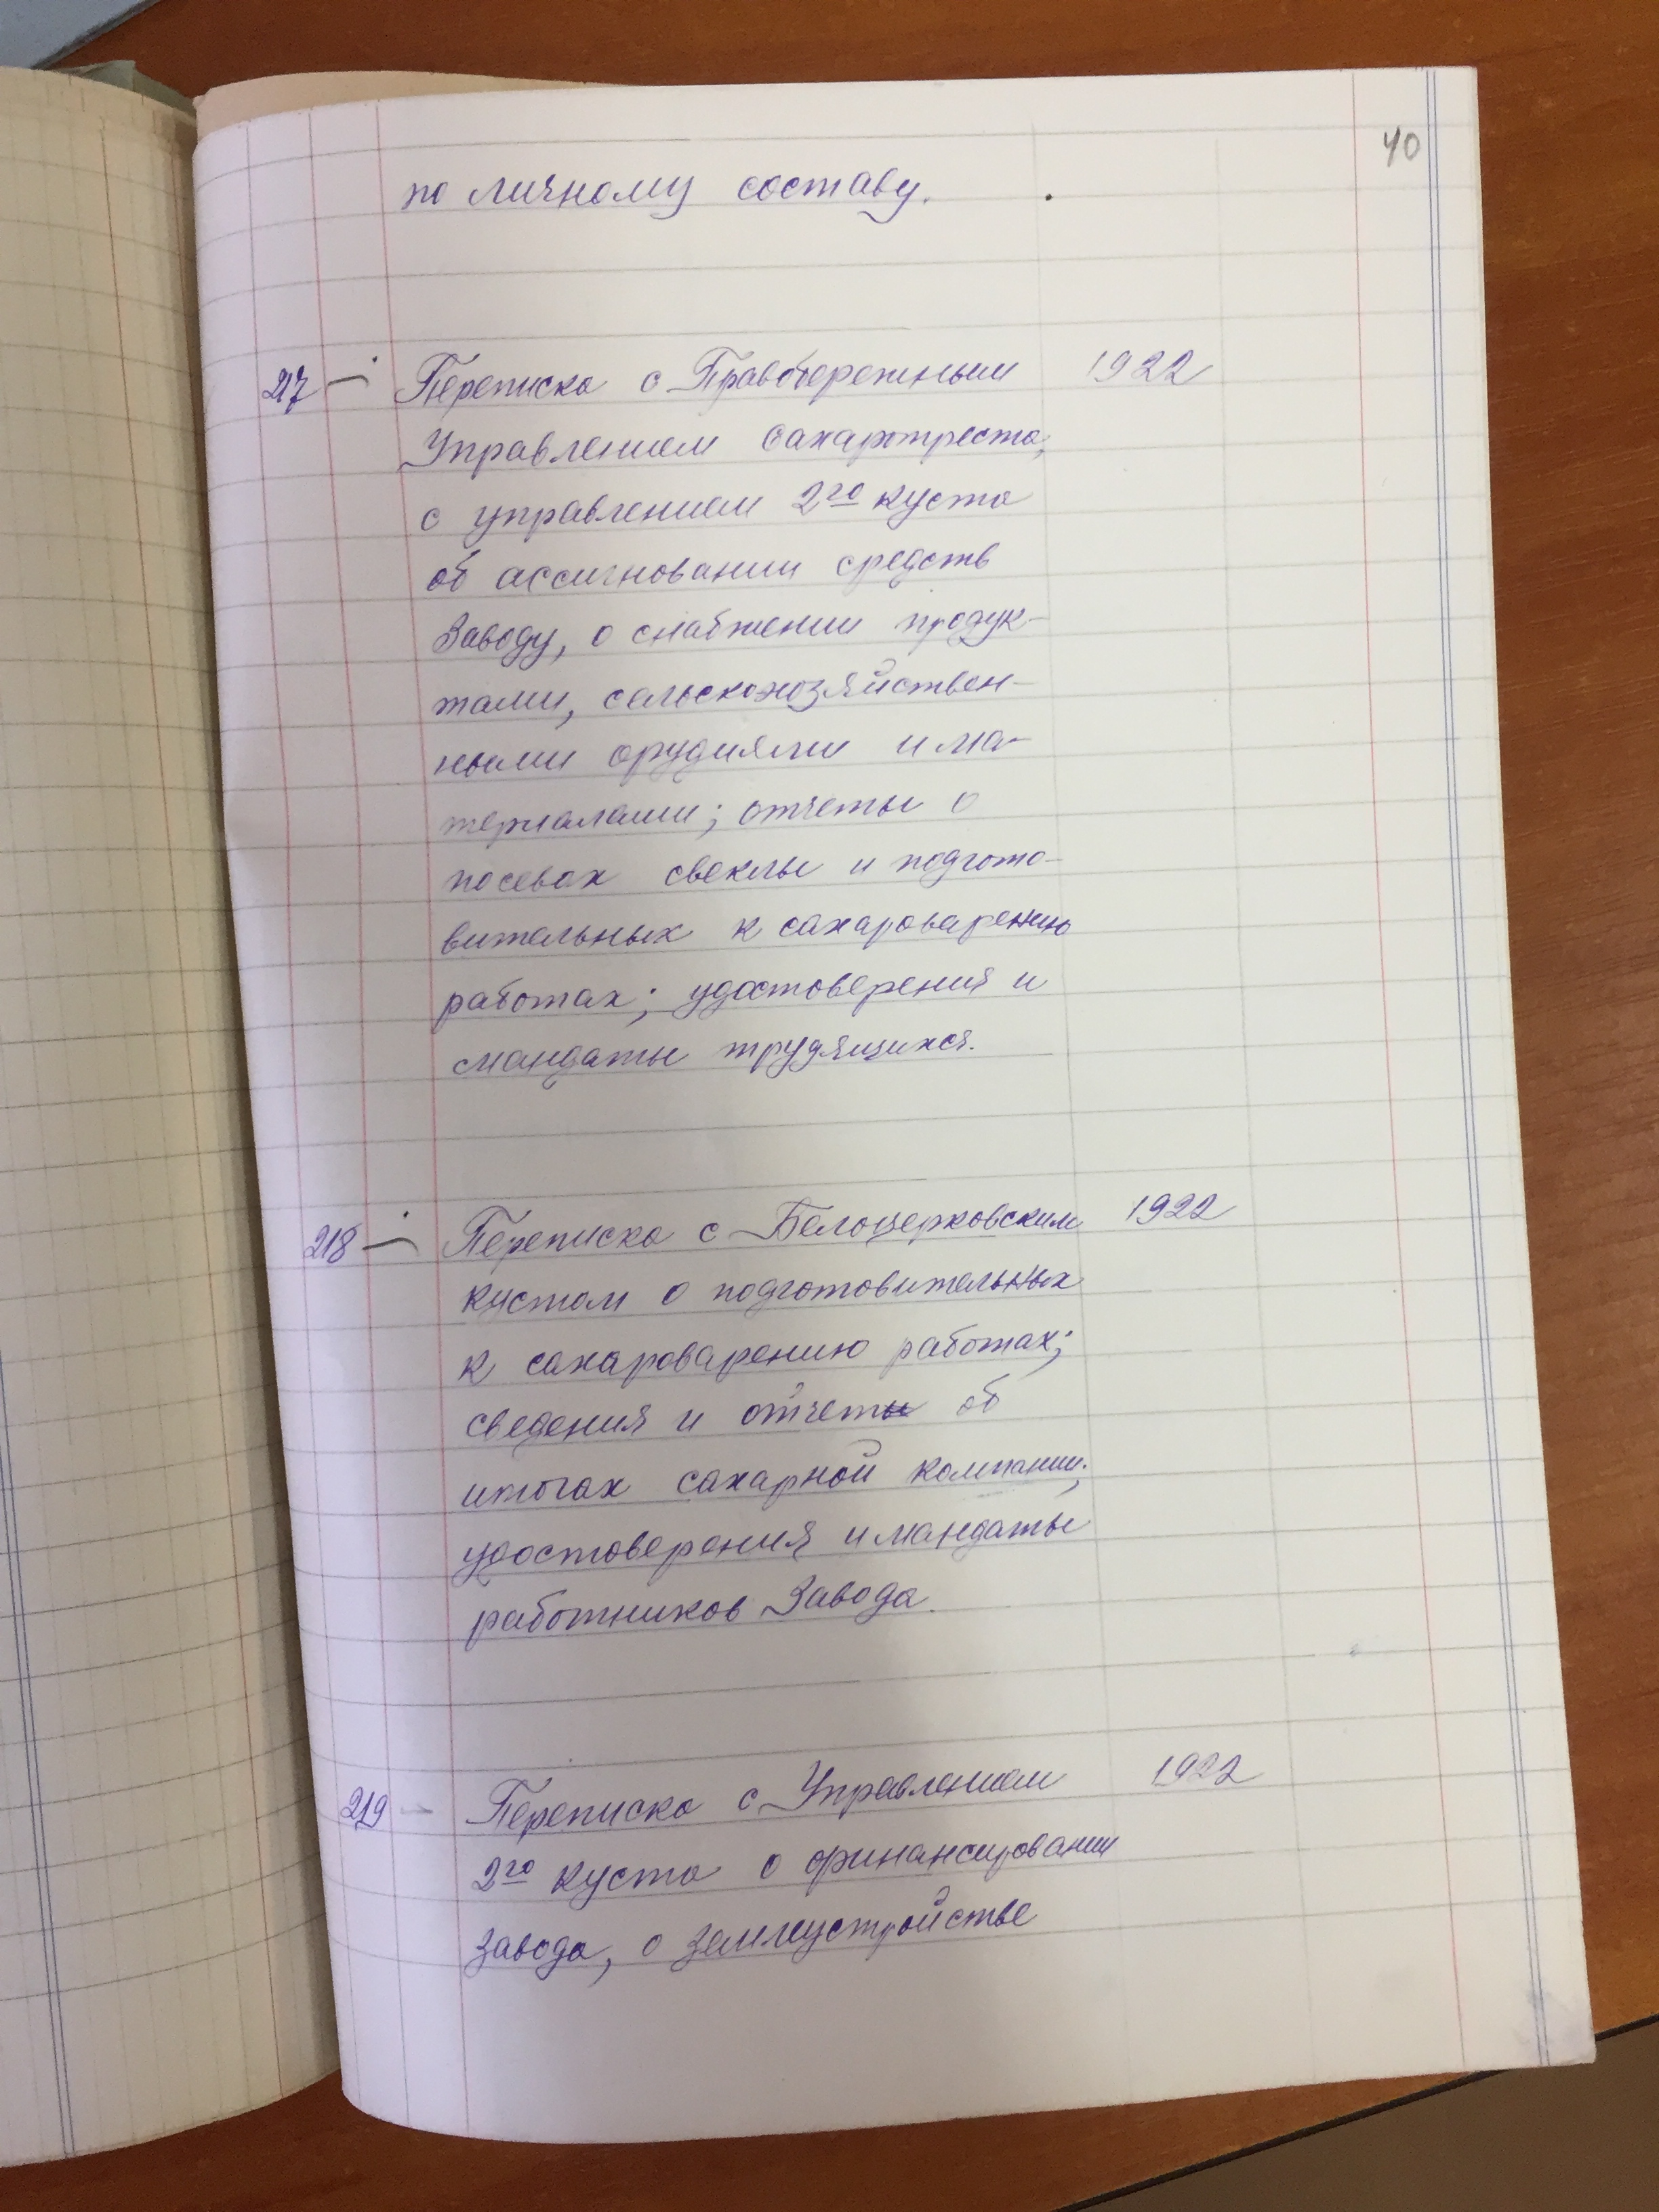 40
по личному составу.
217 — Переписка с Правобережным 1922
Управлением Сахартреста,
с управлением 2го куста
об ассигновании средств
Заводу, о снабжении продук-
тами, сельскохозяйствен-
ными орудиями и ма-
териалами; отчеты о
посевах свеклы и подгото-
вительных к сахароварению
работах; удостоверения и
мандаты трудящихся.
218 — Переписка с Белоцерковским 1922
кустом о подготовительных
к сахароварению работах;
сведения и отчеты об
итогах сахарной компании;
удостоверения и мандаты
работников Завода.
219 - Переписка с Управлением 1922
2го куста о финансировании
завода, о землеустройстве